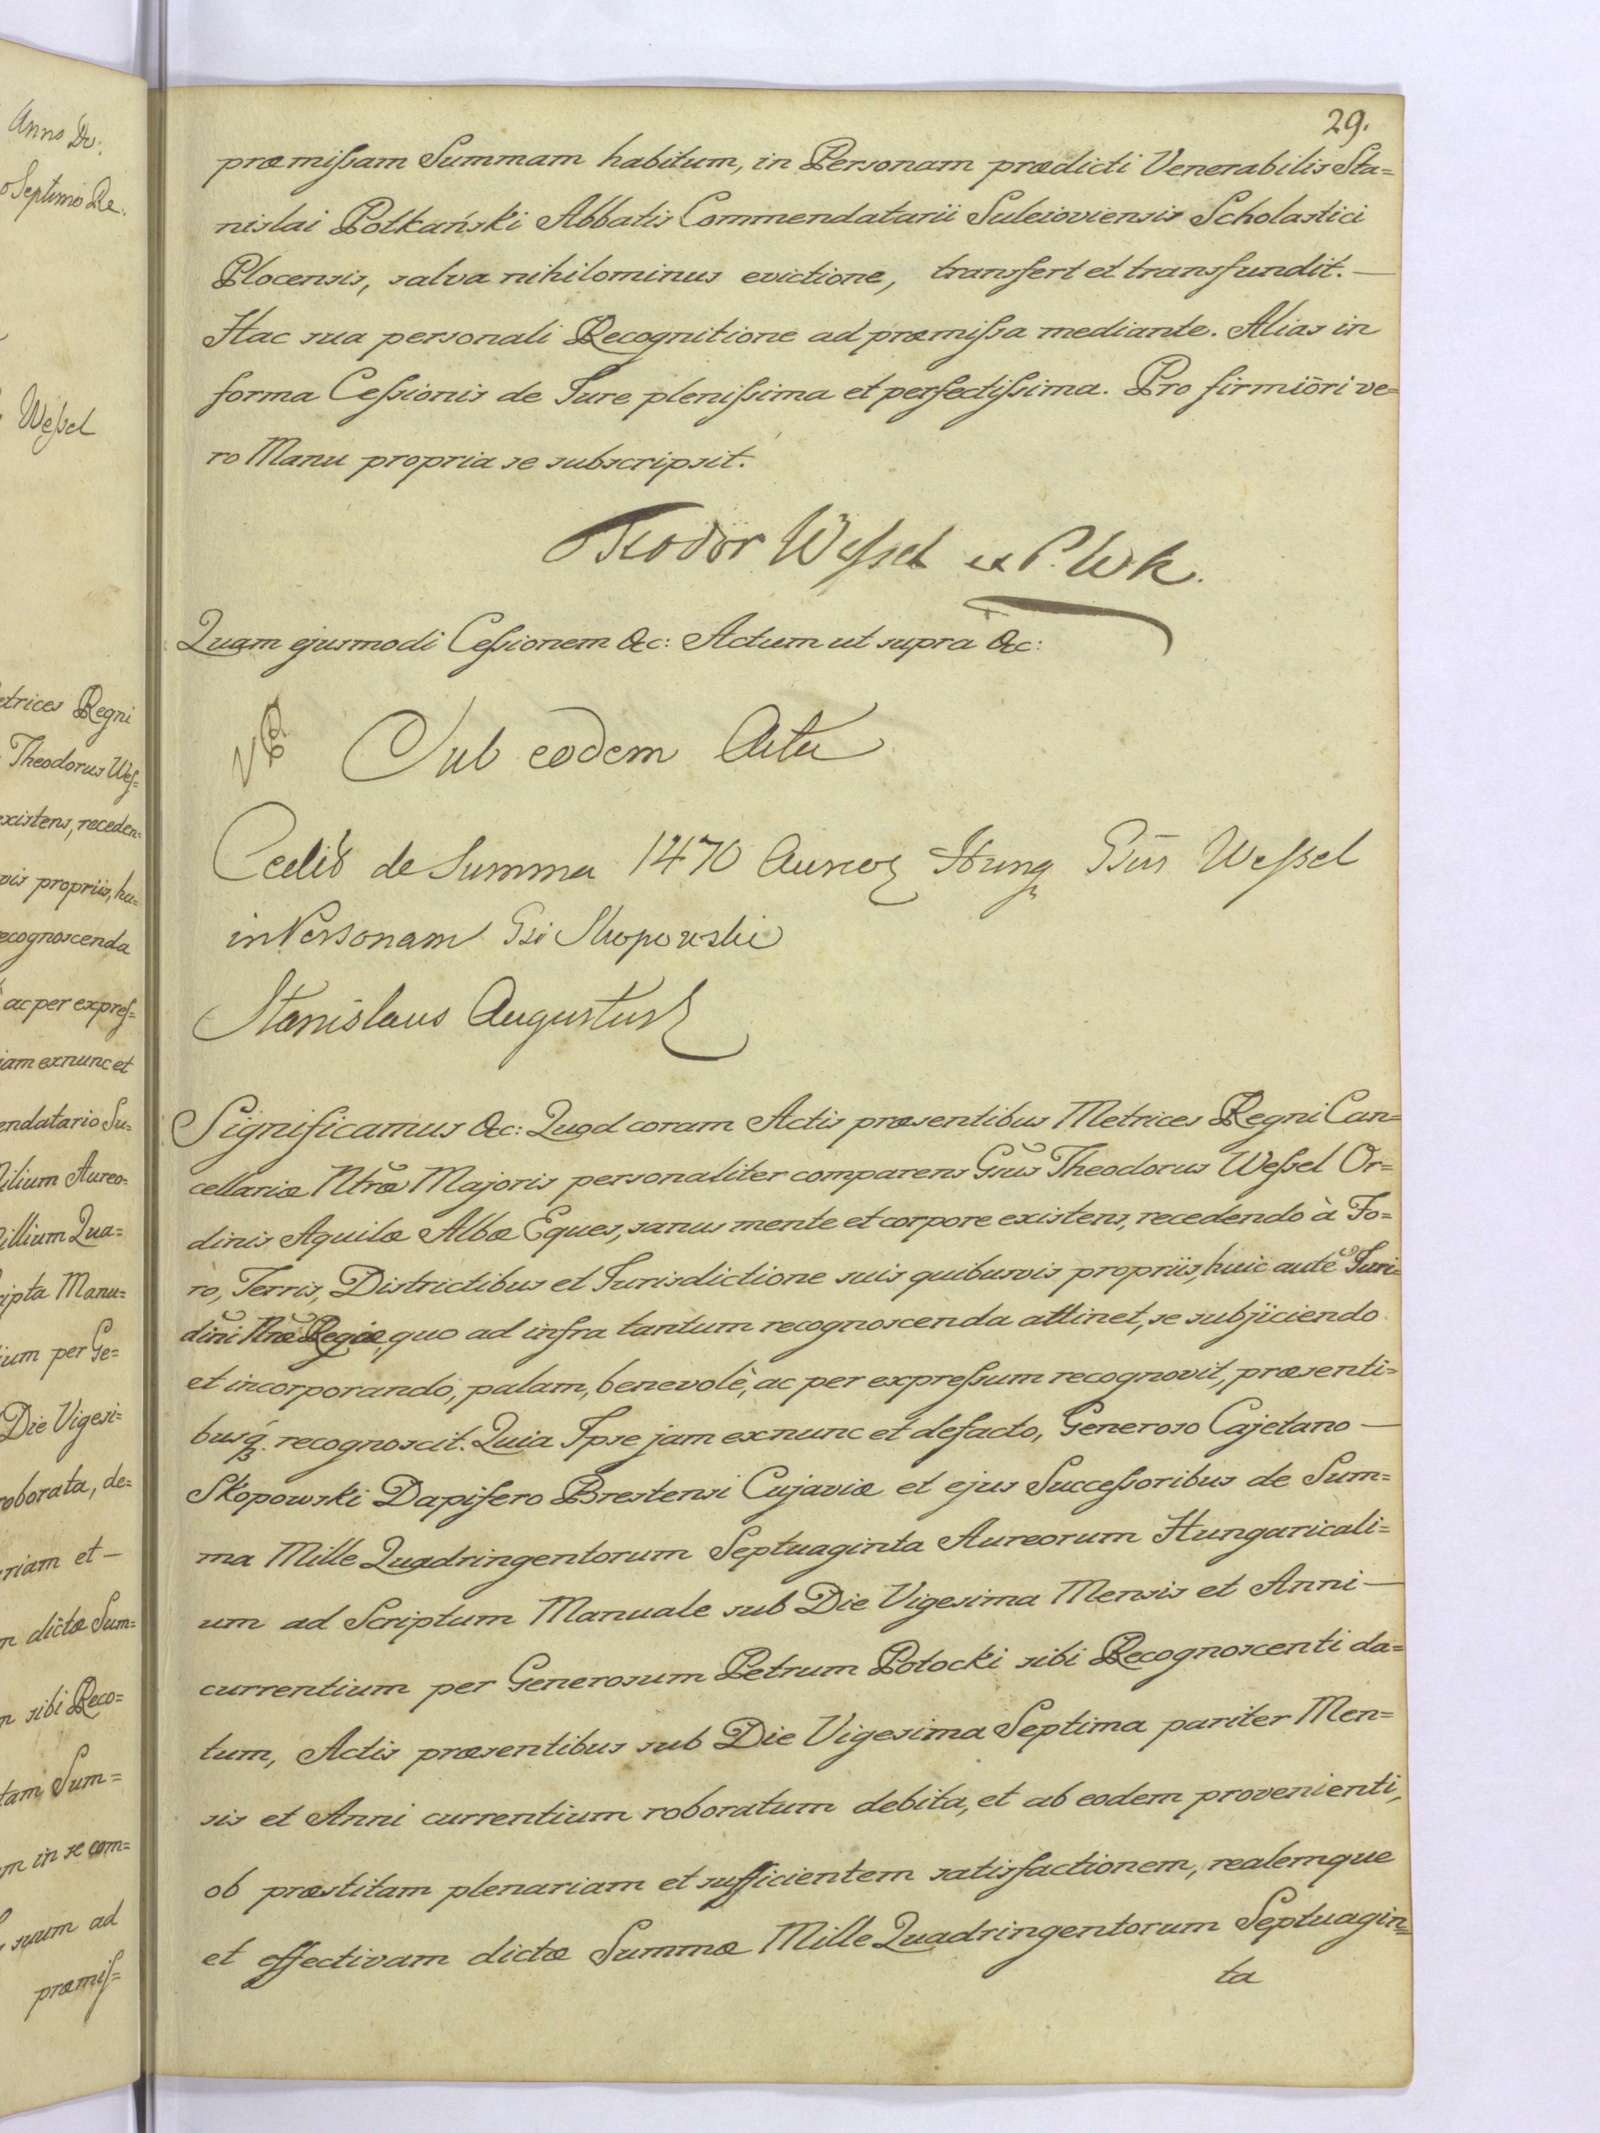 29.
præmissam Summam habitum, in Personam prædicti Venerabilis Sta=
nislai Potkański Abbatis Commendatarii Suleioviensis Scholastici
Plocensis, salva nihilominus evictione, transfert et transfundit. —
Hac sua personali Recognitione ad præmissa mediante. Alias in
forma Cessionis de Jure plenissima et perfectissima. Pro firmiōri ve=
ro Manu propria se subscripsit.
Teodor Wessel
Quam ejusmodi Cessionem &c: Actum ut supra &c:
Sub eodem Actu
de Summa 1470 Aureoꝝ Hung Wessel
in Personam Gsi Skopowski
Stanislaus Augustus
Significamus &c: Quod coram Actis præsentibus Metrices Regni Can=
cellariæ Ntræ Majoris personaliter comparens Gsus Theodorus Wessel Or=
dinis Aquilæ Albæ Eques, sanus mente et corpore existens, recedendo à Fo=
ro, Terris, Districtibus et Jurisdictione suis quibusvis propriis, huic aute Juri=
dini Nræ Regiæ, quo ad infra tantum recognoscenda attinet, se subjiciendo
et incorporando, palam, benevolè, ac per expressum recognovit, præsenti=
busq. recognoscit. Quia Ipse jam exnunc et defacto, Generoso Cajetano —
Skopowski Dapifero Brestensi Cujaviæ et ejus Successoribus de Sum=
ma Mille Quadringentorum Septuaginta Aureorum Hungaricali=
um ad Scriptum Manuale sub Die Vigesima Mensis et Anni —
currentium per Generosum Petrum Potocki sibi Recognoscenti da=
tum, Actis præsentibus sub Die Vigesima Septima pariter Men=
sis et Anni currentium roboratum debita, et ab eodem provenienti,
ob præstitam plenariam et sufficientem satisfactionem, realemque
et effectivam dictæ Summæ Mille Quadringentorum Septuagin=
ta